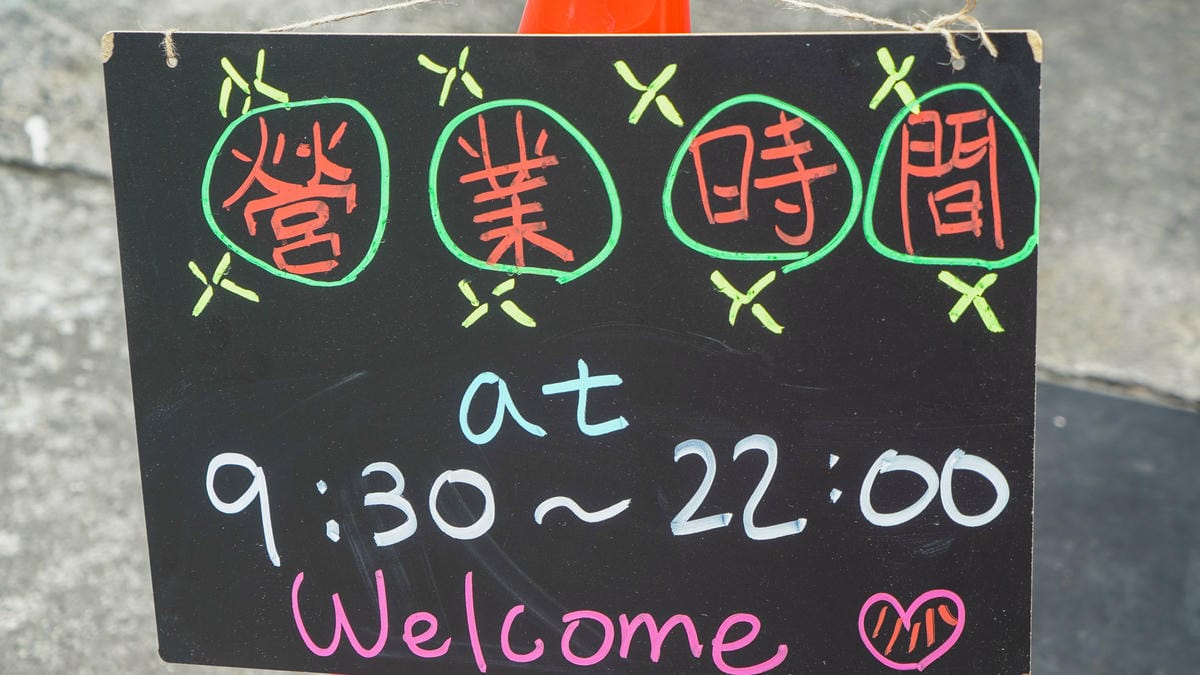 營業時間
at
9:30~22:00
Welcome